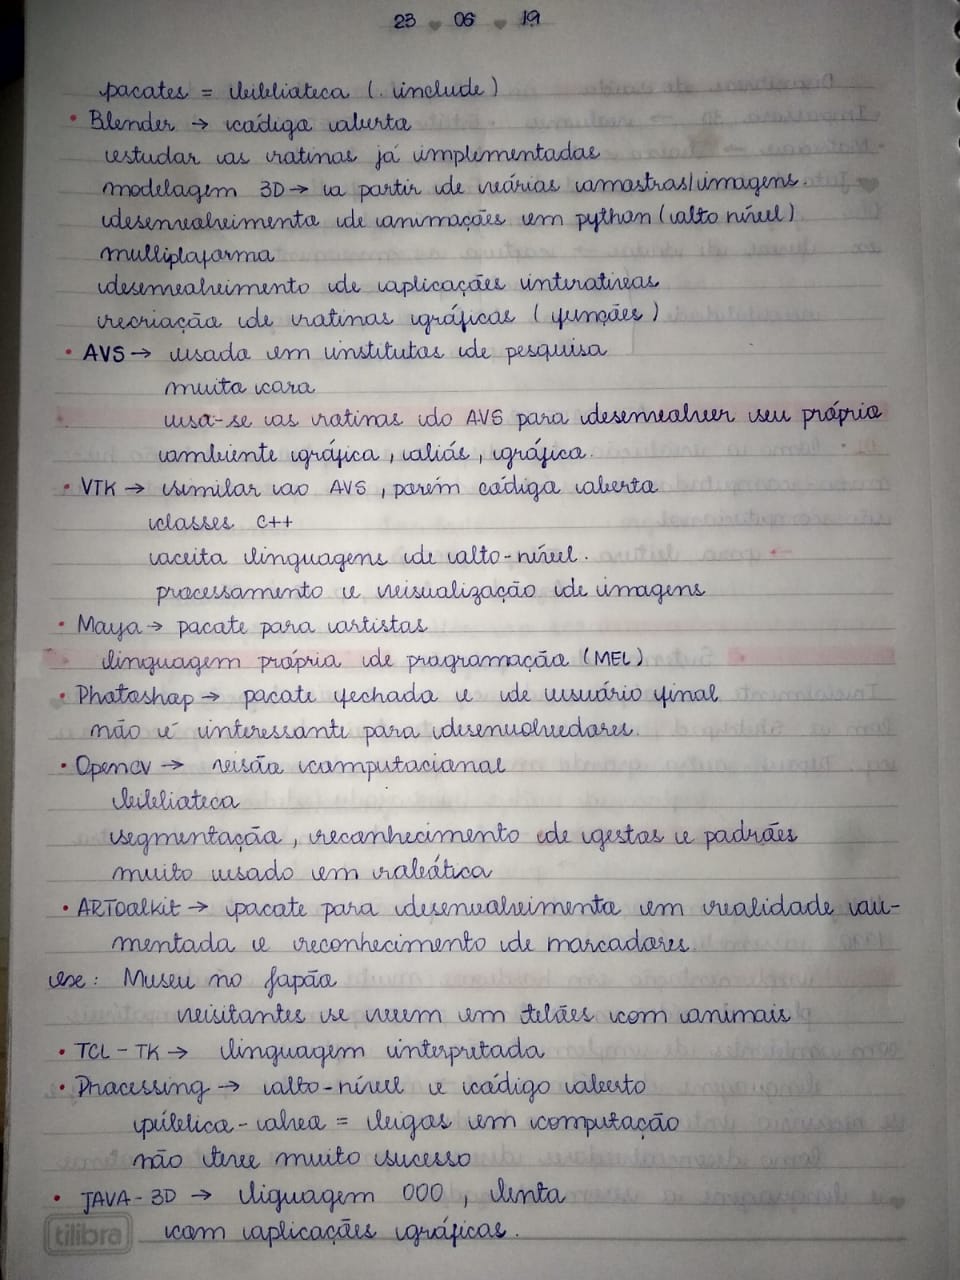 23 06 19
pacotes = biblioteca (. include)
• Blender → código aberto
estudar as rotinas já implementadas
modelagem 3D → a partir de várias amostras/imagens.
desenvolvimento de animações em python (alto nível)
multiplaforma
desenvolvimento de aplicações interativas
recriação de rotinas gráficas (funções)
• AVS → usado em institutos de pesquisa
muito caro
usa-se as rotinas do AVS para desenvolver seu próprio
ambiente gráfico, aliás, gráfico.
• VTK → similar ao AVS, porém código aberto
classes C++
aceita linguagens de alto-nível.
processamento e visualização de imagens
• Maya → pacote para artistas
linguagem própria de programação (MEL)
• Photoshop → pacote fechado e de usuário final
não é interessante para desenvolvedores.
• Opencv → visão computacional
biblioteca
segmentação, reconhecimento de gestos e padrões
muito usado em robótica
• ARToolkit → pacote para desenvolvimento em realidade au-
mentada e reconhecimento de marcadores.
ex: Museu no Japão
visitantes se veem em telões com animais
• TCL - TK → linguagem interpretada
• Processing → alto-nível e código aberto
público-alvo = leigos em computação
não teve muito sucesso
• JAVA - 3D → liguagem OOO, lenta
com aplicações gráficas.
tilibra